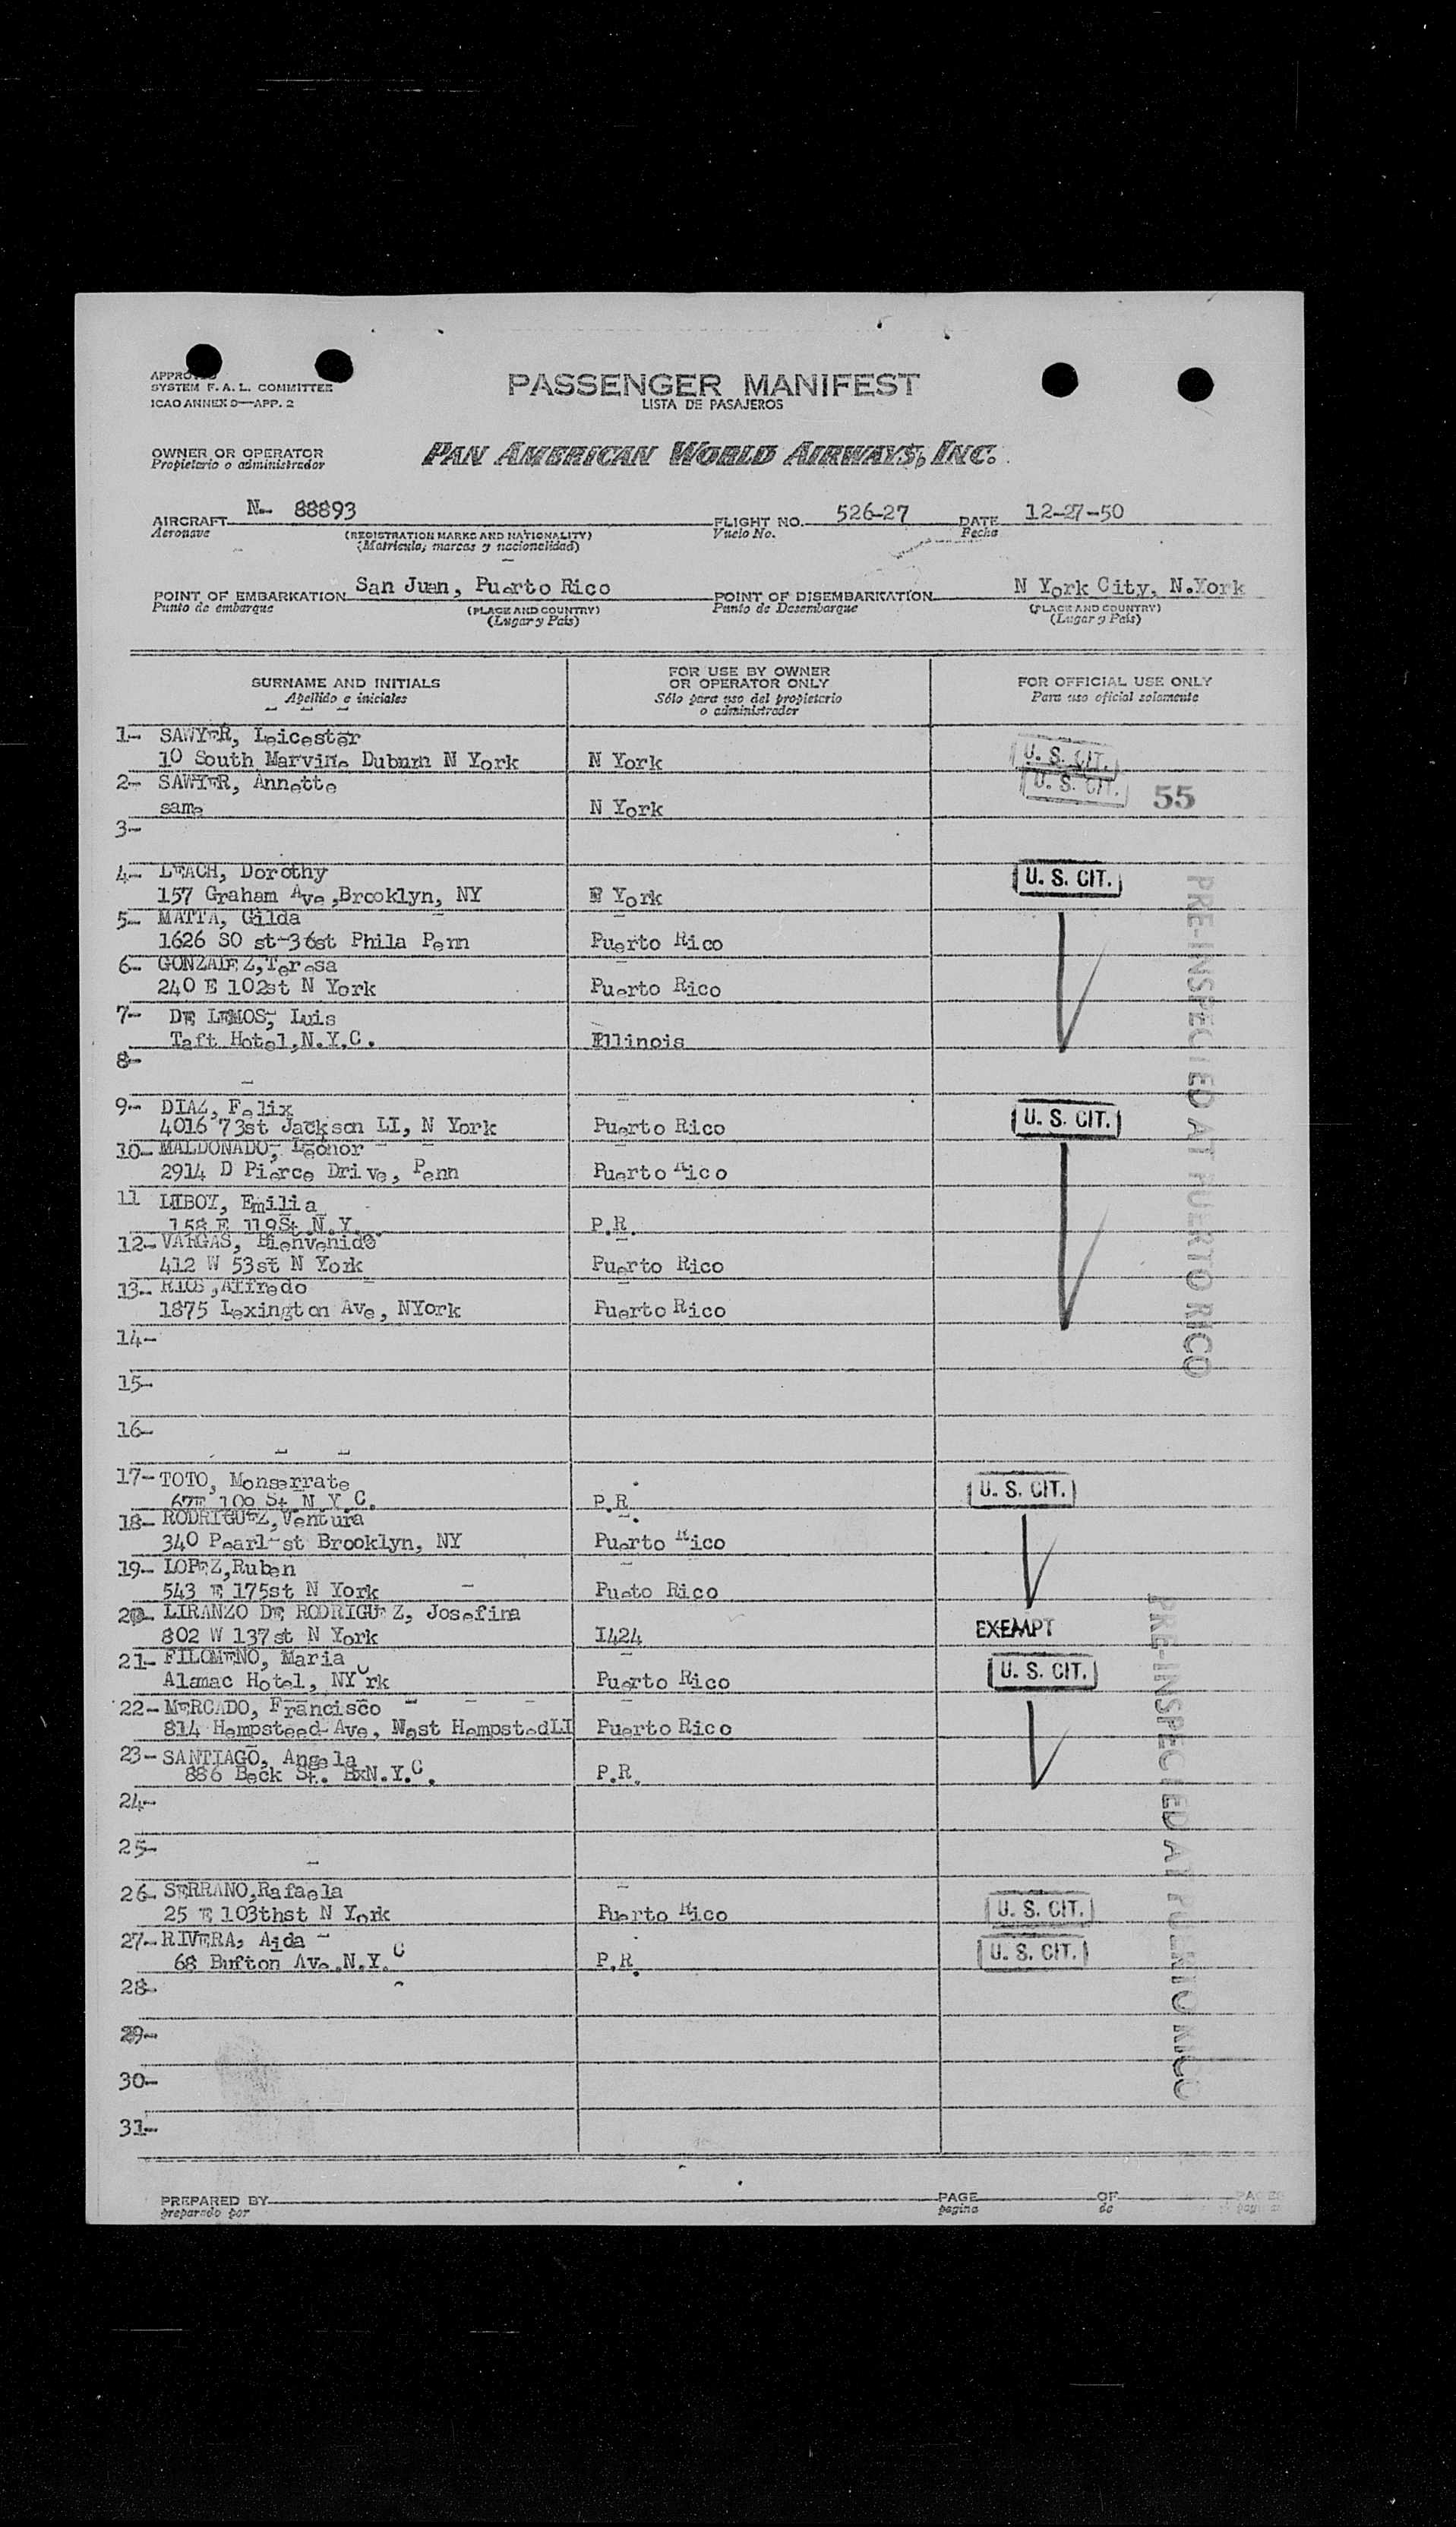 APPROVED
SYSTEM F. A. L. COMMITTEE
ICAO ANNEX 9—APP. 2
PASSENGER MANIFEST
LISTA DE PASAJEROS
OWNER OR OPERATOR
Propietario o administrador
PAN AMERICAN WORLD AIRWAYS, INC.
AIRCRAFT N- 88893 FLIGHT NO. 526-27 DATE 12-27-50
Aeronave (REGISTRATION MARKS AND NATIONALITY) Vuelo No. Fecha
(Matricula, marcas y nacionalidad)
POINT OF EMBARKATION San Juan, Puerto Rico POINT OF DISEMBARKATION N York City, N.York
Punto de embarque (PLACE AND COUNTRY) Punto de Desembarque (PLACE AND COUNTRY)
(Lugar y País) (Lugar y País)
SURNAME AND INITIALS FOR USE BY OWNER OR OPERATOR ONLY FOR OFFICIAL USE ONLY
Apellido e iniciales Sólo para uso del propietario o administrador Para uso oficial solamente
1- SAWYER, Leicester
10 South Marvine Duburn N York N York U. S. CIT.
2- SAWYER, Annette U. S. CIT. 55
same N York
3-
4- LEACH, Dorothy U. S. CIT.
157 Graham Ave,Brooklyn, NY N York
5- MATTA, Gilda
1626 SO st-36st Phila Penn Puerto Rico
6- GONZALEZ,Teresa
240 E 102st N York Puerto Rico
7- DE LEMOS, Luis
Taft Hotel,N.Y.C. Illinois
8-
PRE-INSPECTED AT PUERTO RICO
9- DIAZ, Felix U. S. CIT.
4016 73st Jackson LI, N York Puerto Rico
10- MALDONADO, Leonor
2914 D Pierce Drive, Penn Puerto Rico
11 LIBOY, Emilia
158 E 119St N.Y. P.R.
12- VARGAS, Bienvenido
412 W 53st N York Puerto Rico
13- RIOS,Alfredo
1875 Lexington Ave, NYork Puerto Rico
14-
15-
16-
17- TOTO, Monserrate U. S. CIT.
67E 100 St N.Y.C. P.R.
18- RODRIGUEZ,Ventura
340 Pearl-st Brooklyn, NY Puerto Rico
19- LOPEZ,Ruben
543 E 175st N York Pueto Rico
20- LIRANZO DE RODRIGUEZ, Josefina EXEMPT
802 W 137st N York I424
21- FILOMENO, Maria U. S. CIT.
Alamac Hotel, NYork Puerto Rico
22- MERCADO, Francisco
814 Hempsteed Ave, West HempstedLI Puerto Rico
23- SANTIAGO, Angela
886 Beck St. BxN.Y.C. P.R.
24-
25-
PRE-INSPECTED AT PUERTO RICO
26- SERRANO,Rafaela
25 E 103thst N York Puerto Rico U. S. CIT.
27- RIVERA, Aida U. S. CIT.
68 Bufton Ave.N.Y.C P.R.
28-
29-
30-
31-
PREPARED BY PAGE OF PAGES
preparado por pagina de paginas